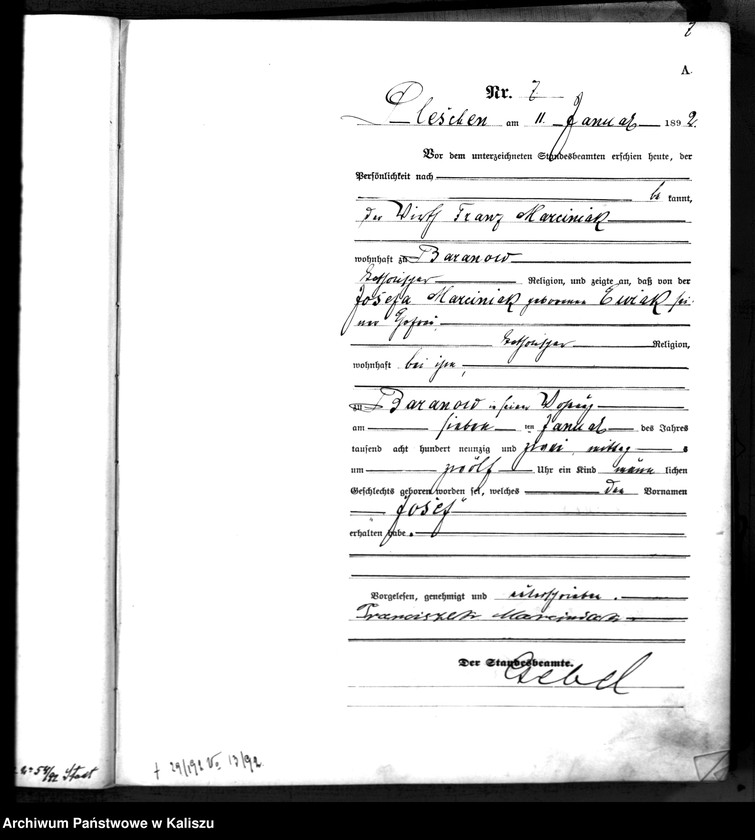 7
A.
Nr. 7
Pleschen am 11. Januar 1892.
Vor dem unterzeichneten Standesbeamten erschien heute, der
Persönlichkeit nach
be kannt,
der Wirth Franz Marciniak
wohnhaft zu Baranow
katholischer Religion, und zeigte an, daß von der
Josefa Marciniak geborenen Cwiak sei-
ner Ehefrau
katholischer Religion,
wohnhaft bei ihm,
zu Baranow in seiner Wohnung
am sieben ten Januar des Jahres
tausend acht hundert neunzig und zwei mittags
um zwölf Uhr ein Kind männ lichen
Geschlechts geboren worden sei, welches den Vornamen
Josef
erhalten habe.
Vorgelesen, genehmigt und unterschrieben.
Franciszek Marciniak
Der Standesbeamte.
54/92 Stadt
† 29/1 92 No 13/92
Archiwum Państwowe w Kaliszu